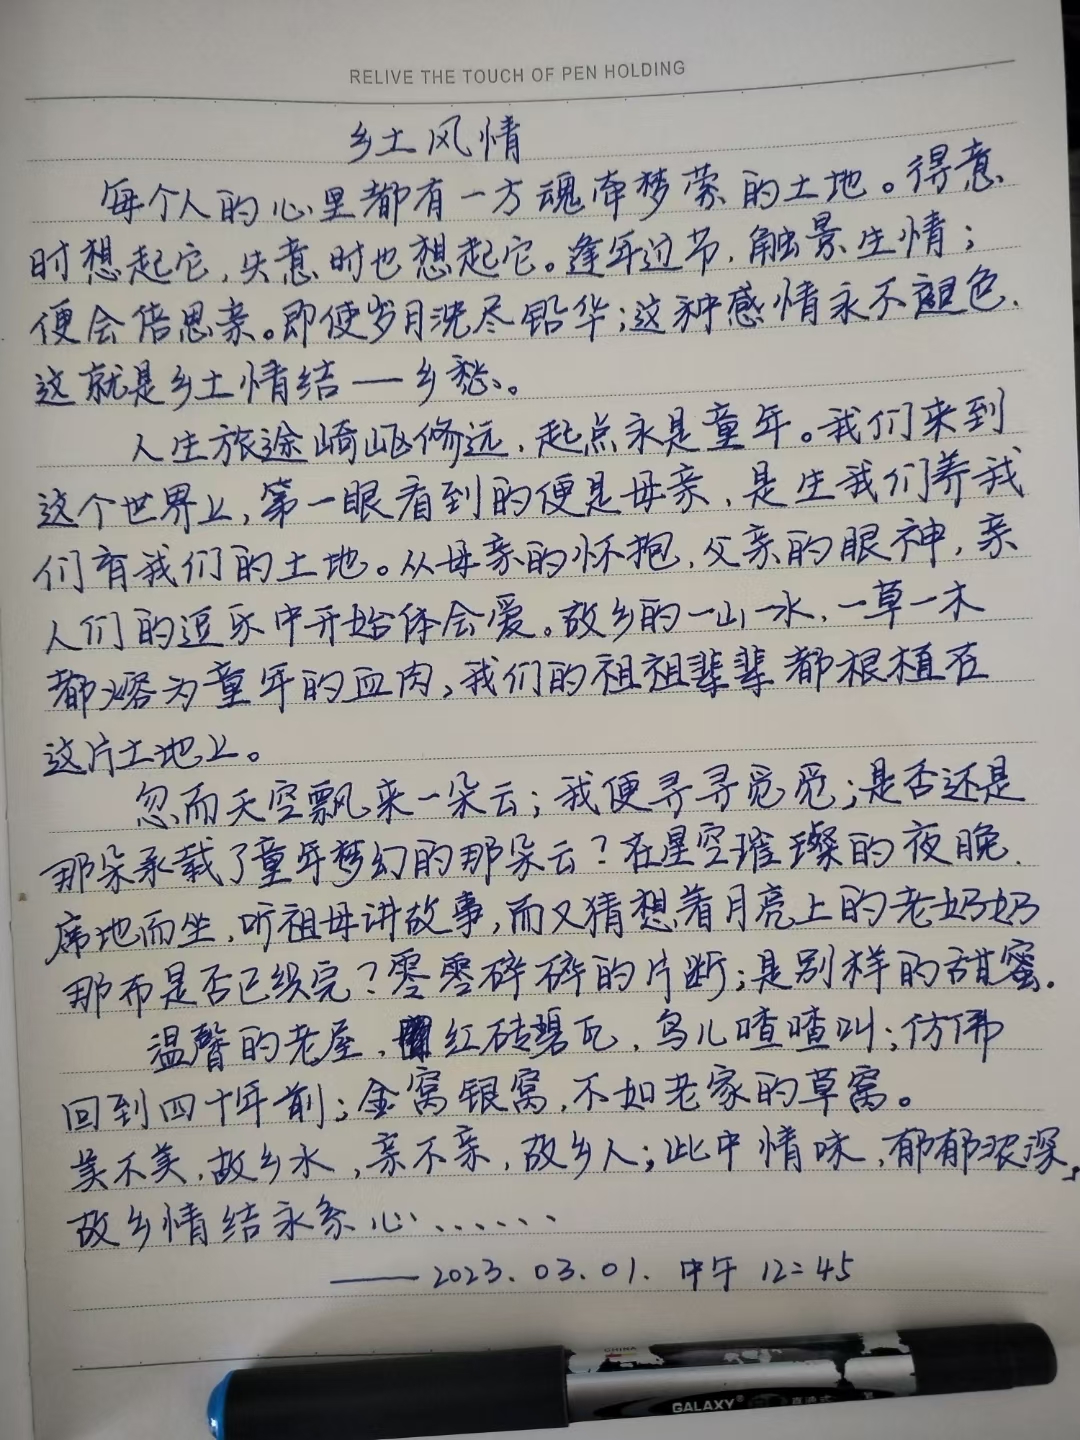 RELIVE THE TOUCH OF PEN HOLDING
乡土风情
每个人的心里都有一方魂牵梦萦的土地。得意
时想起它,失意时也想起它。逢年过节,触景生情;
便会倍思亲。即使岁月洗尽铅华;这种感情永不褪色.
这就是乡土情结——乡愁、。
人生旅途崎岖修远,起点永是童年。我们来到
这个世界上,第一眼看到的便是母亲,是生我们养我
们育我们的土地。从母亲的怀抱,父亲的眼神,亲
人们的逗乐中开始体会爱。故乡的一山一水,一草一木
都熔为童年的血肉,我们的祖祖辈辈都根植在
这片土地上。
忽而天空飘来一朵云;我便寻寻觅觅;是否还是
那朵承载了童年梦幻的那朵云?在星空璀璨的夜晚.
席地而坐,听祖母讲故事,而又猜想着月亮上的老奶奶
那布是否已织完?零零碎碎的片断;是别样的甜蜜.
温馨的老屋,红砖碧瓦,鸟儿喳喳叫;仿佛
回到四十年前;金窝银窝,不如老家的草窝。
美不美,故乡水,亲不亲,故乡人;此中情味,郁郁浓深,
故乡情结永系心......
——2023.03.01.中午12:45
CHINA
GALAXY®